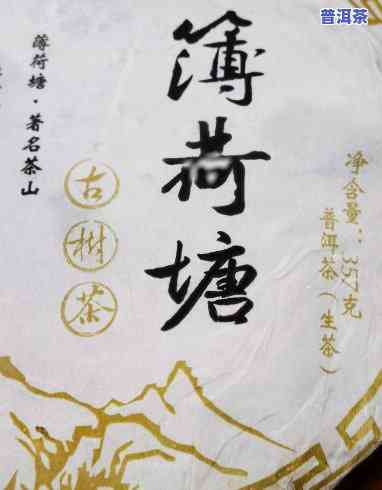 普洱茶
净含量：357克
普洱茶（生茶）
簿荷塘
古樹茶
薄荷塘·著名茶山